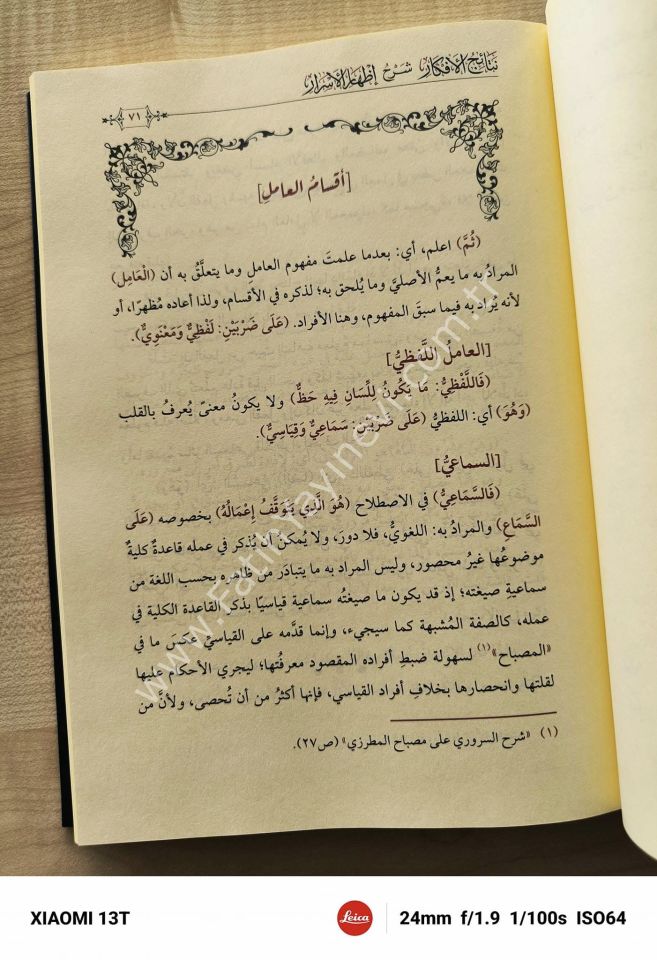 نتائج الأفكار شرح إظهار الأسرار
٧١
[أقسامُ العاملِ]
(ثُمَّ) اعلم، أي: بعدما علمتَ مفهوم العاملِ وما يتعلَّقُ به أن (الْعَامِلَ)
المرادُ به ما يعمُّ الأصليَّ وما يُلحق به؛ لذكره في الأقسام، ولذا أعاده مُظهرًا، أو
لأنه يُراد به فيما سبقَ المفهوم، وهنا الأفراد. (عَلَى ضَرْبَيْنِ: لَفْظِيٌّ وَمَعْنَوِيٌّ).
[العاملُ اللَّفظيُّ]
(فَاللَّفْظِيُّ: مَا يَكُونُ لِلِّسَانِ فِيهِ حَظٌّ) ولا يكونُ معنىً يُعرفُ بالقلب
(وَهُوَ) أي: اللفظيُّ (عَلَى ضَرْبَيْنِ: سَمَاعِيٌّ وَقِيَاسِيٌّ).
[السماعيُّ]
(فَالسَّمَاعِيُّ) في الاصطلاح (هُوَ الَّذِي يَتَوَقَّفُ إِعْمَالُهُ) بخصوصه (عَلَى
السَّمَاعِ) والمرادُ به: اللغويُّ، فلا دورَ، ولا يُمكنُ أن يُذكر في عمله قاعدةٌ كليةٌ
موضوعُها غيرُ محصور، وليس المراد به ما يتبادَر من ظاهره بحسب اللغة من
سماعيةِ صيغته؛ إذ قد يكون ما صيغتُه سماعية قياسيًا بذكر القاعدة الكلية في
عمله، كالصفة المُشبهة كما سيجيء، وإنما قدَّمه على القياسيِّ عكسَ ما في
«المصباح»(١) لسهولة ضبطِ أفراده المقصود معرفتُها؛ ليجري الأحكام عليها
لقلتها وانحصارها بخلافِ أفراد القياسي، فإنها أكثرُ من أن تُحصى، ولأنَّ من
(١) «شرح السروري على مصباح المطرزي» (ص٢٧).
www.FatihYayinevi.com.tr
XIAOMI 13T
Leica
24mm f/1.9 1/100s ISO64